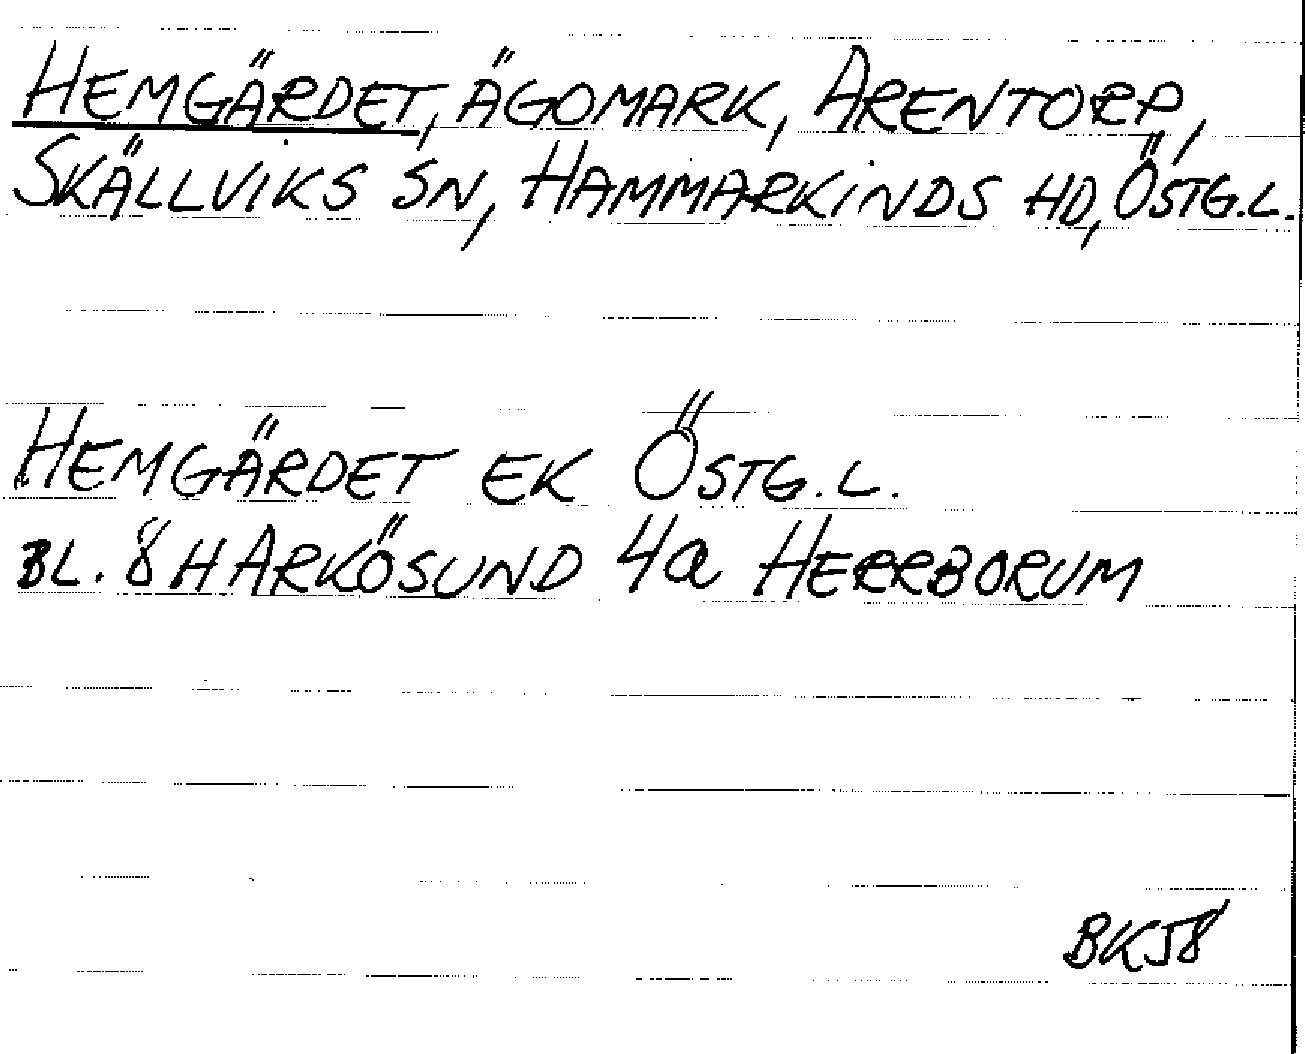 HEMGÄRDET, ÄGOMARK, ARENTORP,
SKÄLLVIKS SN, HAMMARKINDS HD, ÖSTG.L.
HEMGÄRDET EK ÖSTG.L.
BL. 8 H ARKÖSUND 4a HERRBORUM
BK58